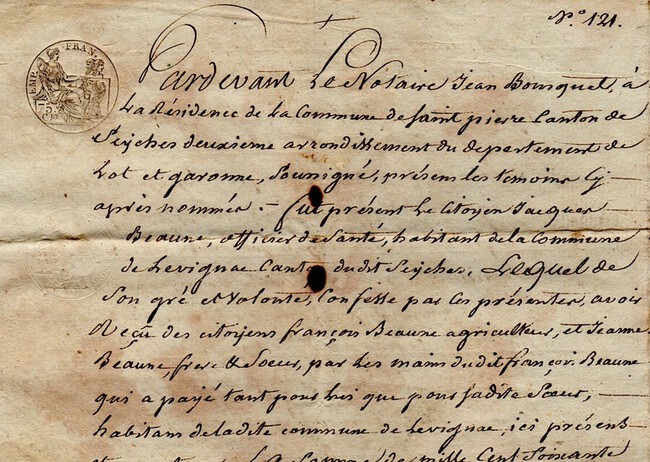 N.º 121.
EMP. FRAN.
Pardevant Le Notaire Jean Bousquel, à
La Résidence de La Commune de Saint pierre Canton de
Seÿches deuxieme arrondissement du departement de
Lot et garonne, Sousigné, présens les temoins Cy
après nommés. — fut présent Le Citoyen Jacques
Beaune, officier de Santé, habitant de La Commune
de Levignac Canton dudit Seÿches, Lequel de
Son gré et volonté, Confesse par ces présentes, avoir
Reçu des citoyens françois Beaune agriculteur, et Jeanne
Beaune, frere & Soeur, par Les mains dudit françois Beaune
qui a payé tant pour Lui que pour Sadite Soeur,
habitans deladite commune de Levignac, ici présent
La Somme de mille Cent Soixante